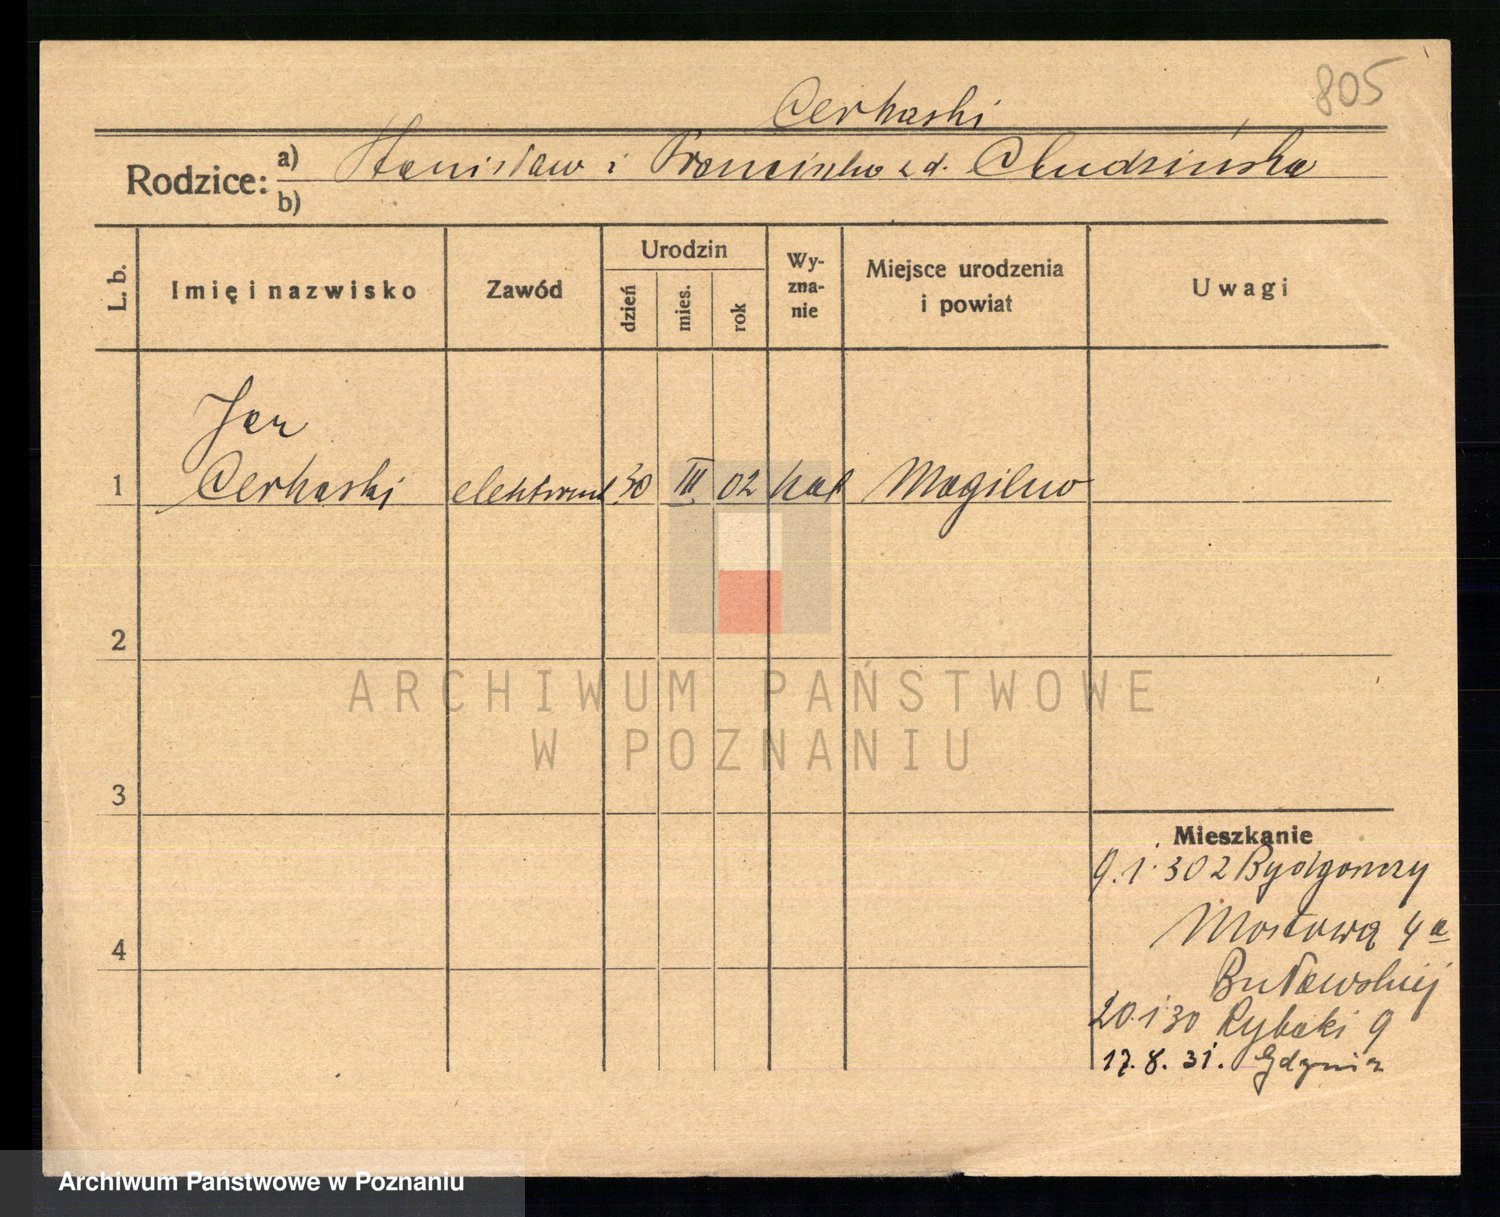 805
Cerkaski
Rodzice:
a) Stanisław i Franciszka z d. Chudzińska
b)
L. b.
Imię i nazwisko
Zawód
Urodzin
dzień
mies.
rok
Wy-
zna-
nie
Miejsce urodzenia
i powiat
Uwagi
Jan
1 Cerkaski 30 III 02 kat Mogilno
2
3
4
Mieszkanie
9.1.30 z Bydgoszczy
Mostowa 4a
20.1.30 Rybaki 9
17.8.31. Gdynia
ARCHIWUM PAŃSTWOWE
W POZNANIU
Archiwum Państwowe w Poznaniu